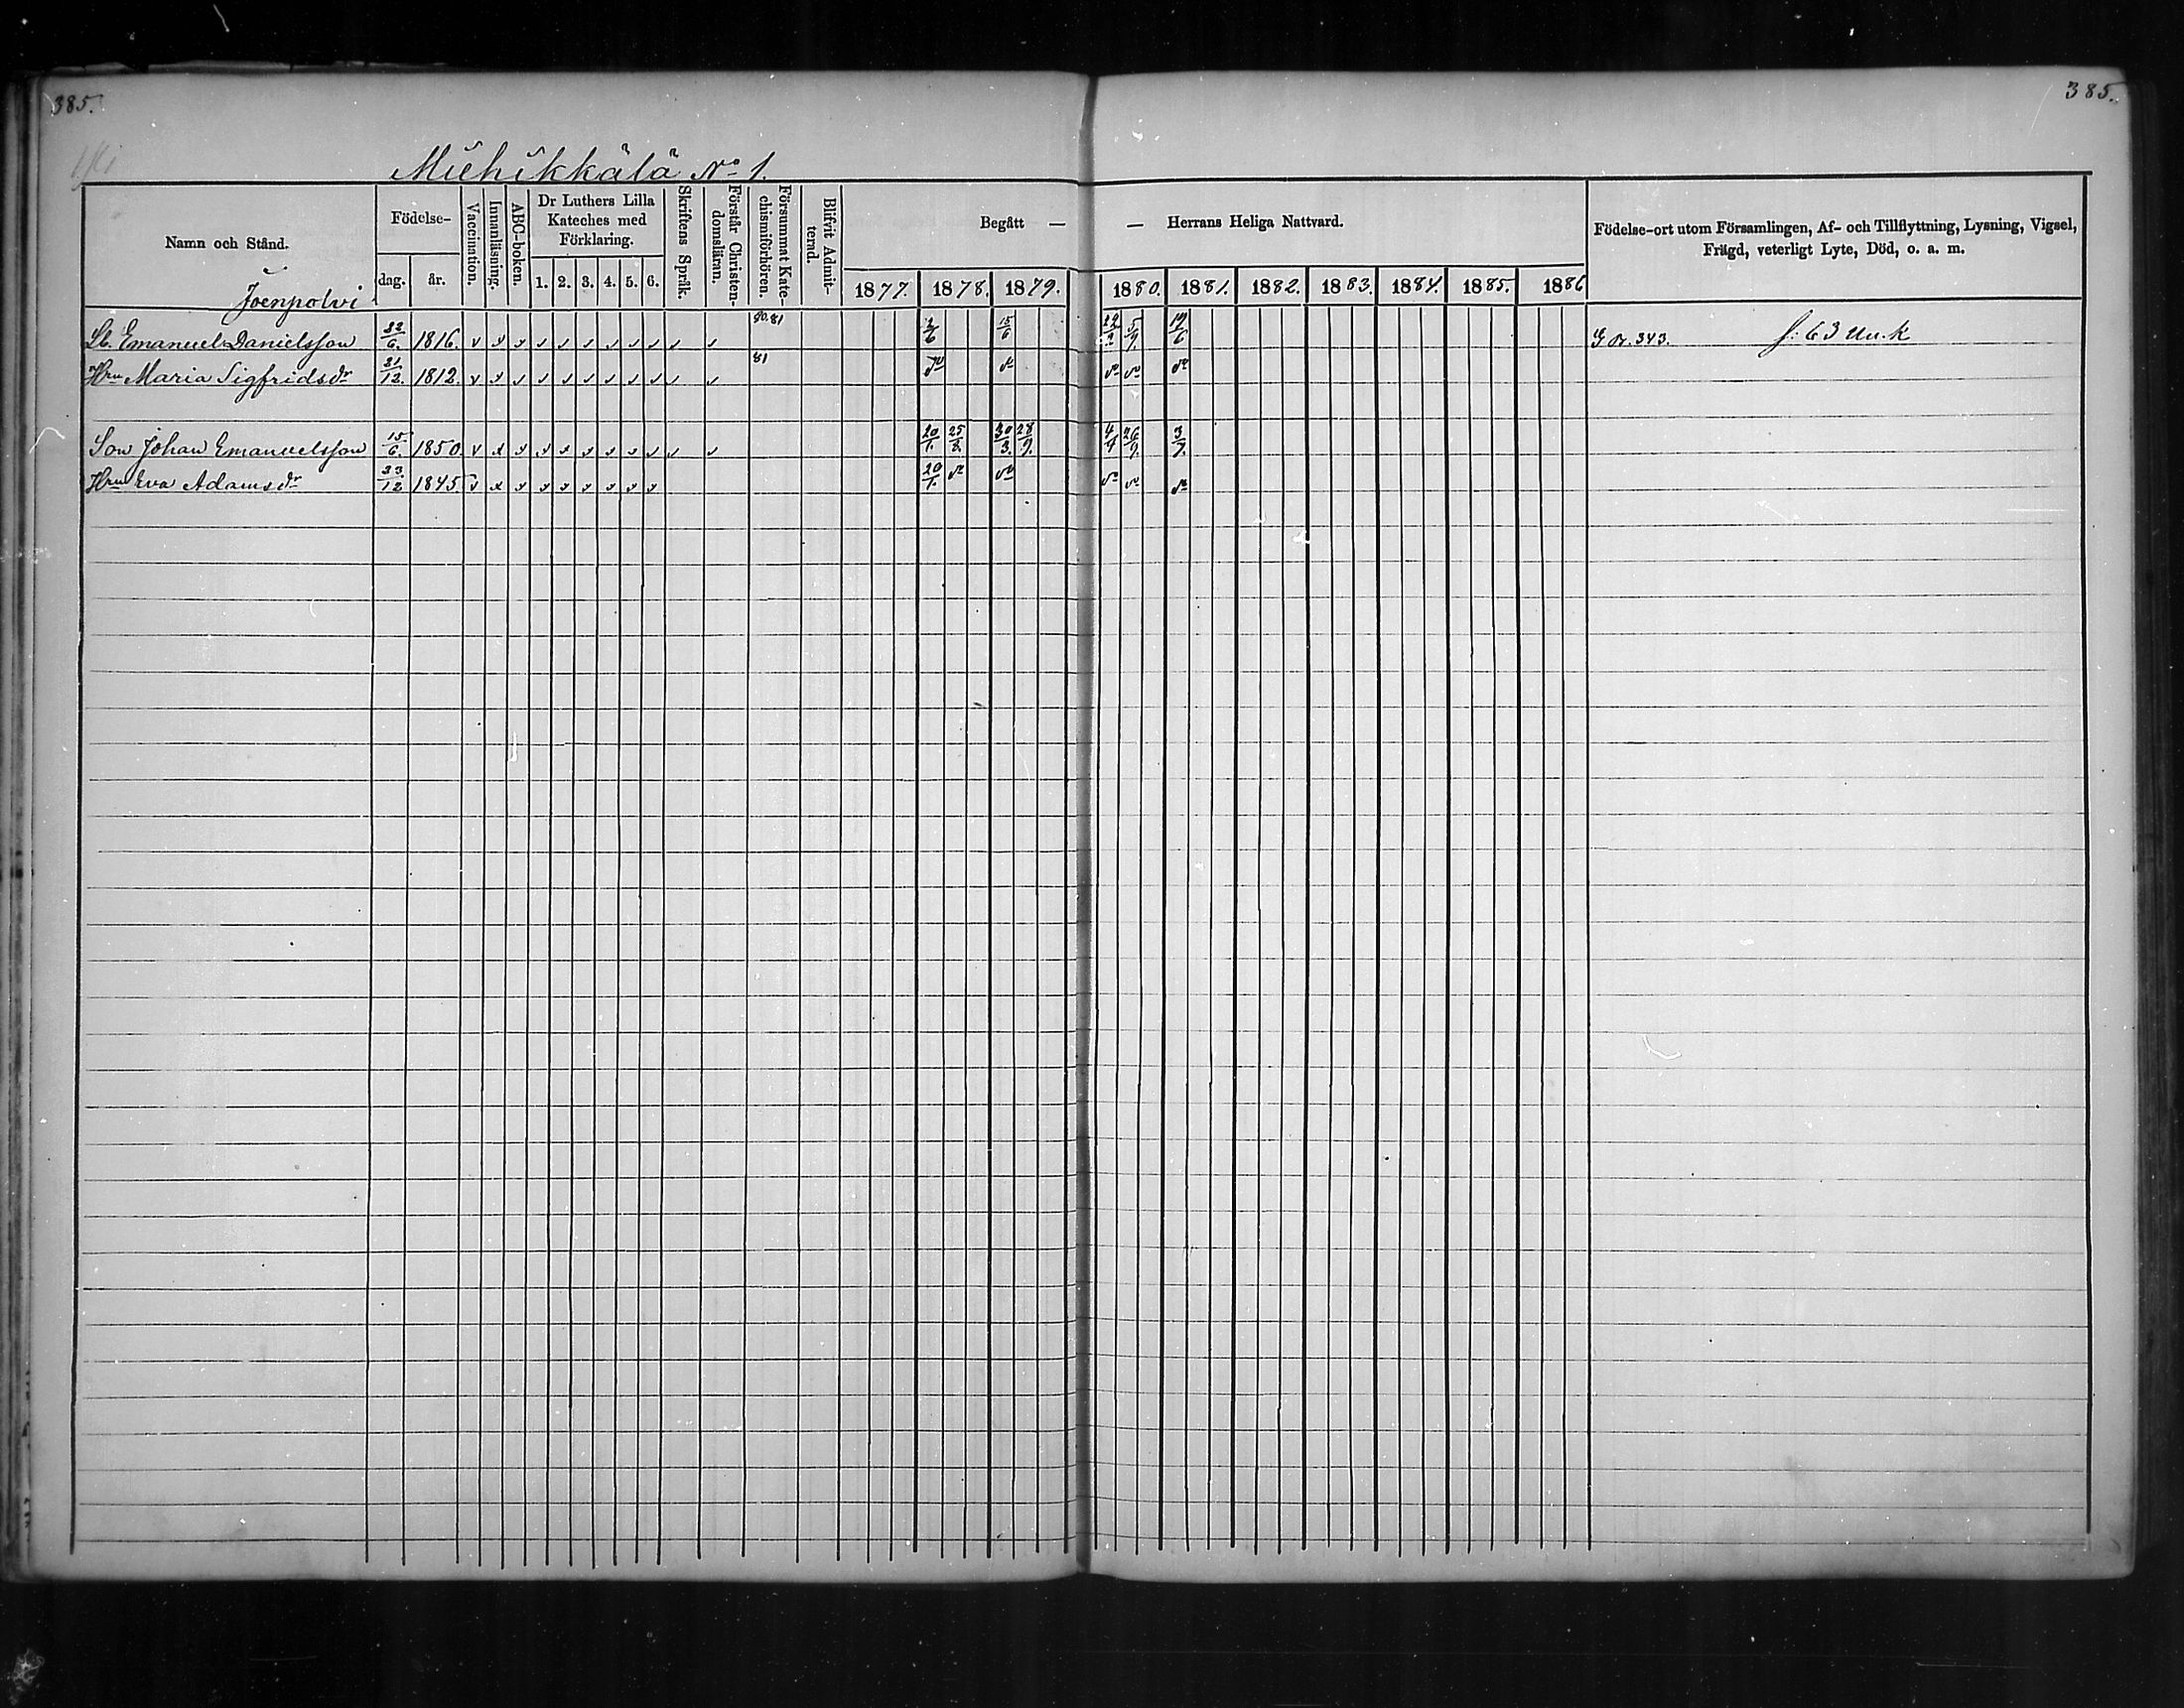 385.
385.
Miehikkälä No 1.
Namn och Stånd.
Födelse-
dag.
år.
Vaccination.
Innanläsning.
ABC-boken.
Dr Luthers Lilla Kateches med Förklaring.
1. 2. 3. 4. 5. 6.
Skriftens Språk.
Förstår Christendomsläran.
Försummat Katechismiförhören.
Blifvit Admitterad.
Begått — — Herrans Heliga Nattvard.
1877. 1878. 1879. 1880. 1881. 1882. 1883. 1884. 1885. 1886
Födelse-ort utom Församlingen, Af- och Tillflyttning, Lysning, Vigsel, Frägd, veterligt Lyte, Död, o. a. m.
Joenpolvi
Emanuel Danielsson 1816. v v v v v v v v v v v 80.81 2/6 15/6 5/9. 19/6 343.
Hru Maria Sigfridsdr 12. 1812. v v v v v v v v v v v 81 do do do do do
Son Johan Emanuelsson 15/6. 1850. v v v v v v v v v v v 20/1. 25/8. 30/3. 28/9. 4/4 26/9. 3/7.
Hru Eva Adamsdr 23/12 1845. v v v v v v v v v 20/1. do do do do do